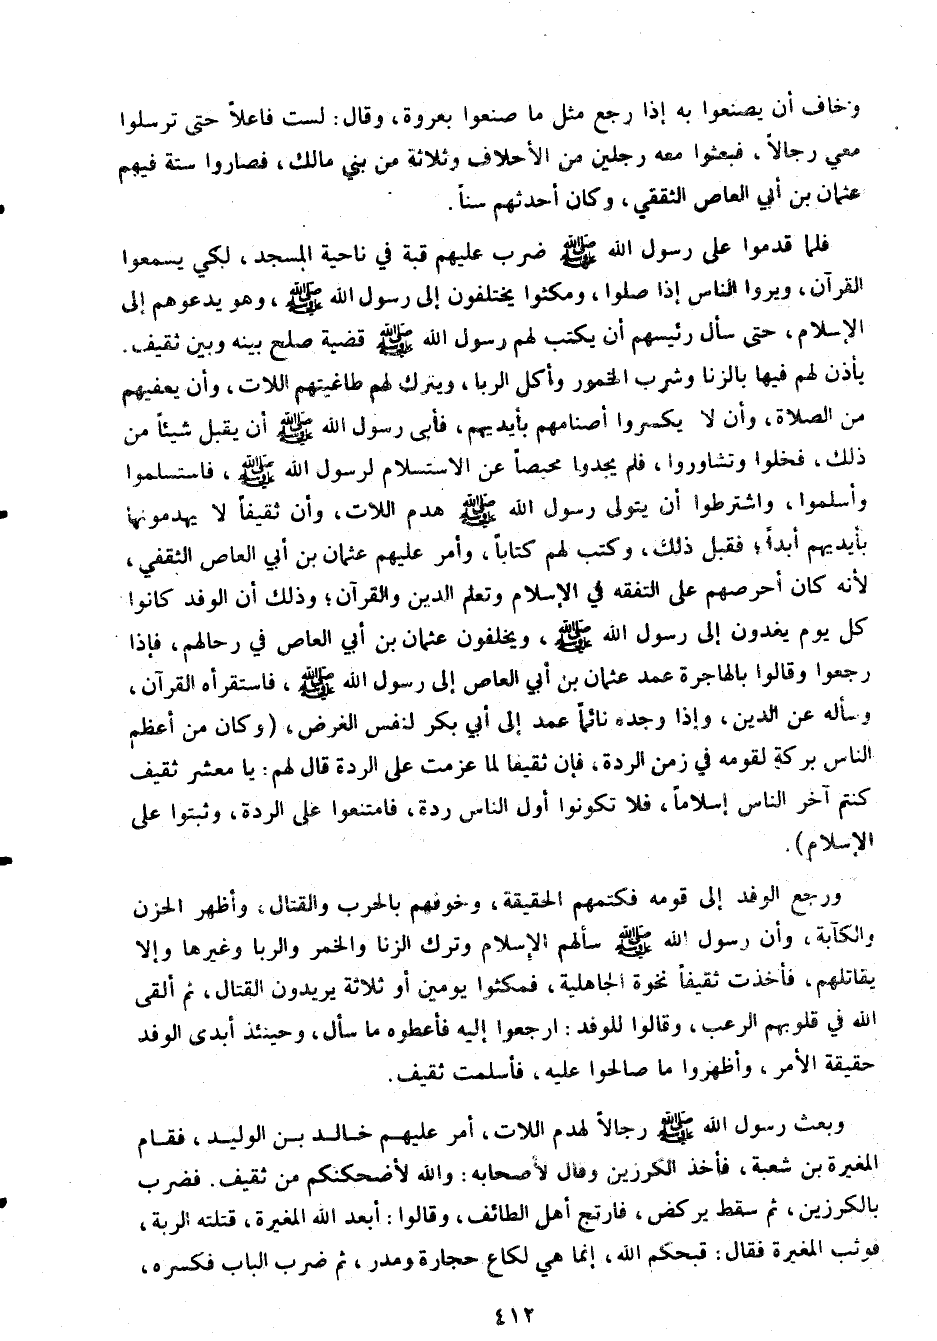 وخاف أن يصنعوا به إذا رجع مثل ما صنعوا بعروة، وقال: لست فاعلاً حتى ترسلوا
معي رجالاً، فبعثوا معه رجلين من الأحلاف وثلاثة من بني مالك، فصاروا ستة فيهم
عثمان بن أبي العاص الثقفي، وكان أحدثهم سناً.
فلما قدموا على رسول الله ﷺ ضرب عليهم قبة في ناحية المسجد، لكي يسمعوا
القرآن، ويروا الناس إذا صلوا، ومكثوا يختلفون إلى رسول الله ﷺ، وهو يدعوهم إلى
الإسلام، حتى سأل رئيسهم أن يكتب لهم رسول الله ﷺ قضية صلح بينه وبين ثقيف.
يأذن لهم فيها بالزنا وشرب الخمور وأكل الربا، ويترك لهم طاغيتهم اللات، وأن يعفيهم
من الصلاة، وأن لا يكسروا أصنامهم بأيديهم، فأبى رسول الله ﷺ أن يقبل شيئاً من
ذلك، فخلوا وتشاوروا، فلم يجدوا محيصاً عن الاستسلام لرسول الله ﷺ، فاستسلموا
وأسلموا، واشترطوا أن يتولى رسول الله ﷺ هدم اللات، وأن ثقيفاً لا يهدمونها
بأيديهم أبداً؛ فقبل ذلك، وكتب لهم كتاباً، وأمر عليهم عثمان بن أبي العاص الثقفي،
لأنه كان أحرصهم على التفقه في الإسلام وتعلم الدين والقرآن؛ وذلك أن الوفد كانوا
كل يوم يغدون إلى رسول الله ﷺ، ويخلفون عثمان بن أبي العاص في رحالهم، فإذا
رجعوا وقالوا بالهاجرة عمد عثمان بن أبي العاص إلى رسول الله ﷺ، فاستقرأه القرآن،
وسأله عن الدين، وإذا وجده نائماً عمد إلى أبي بكر لنفس الغرض، (وكان من أعظم
الناس بركة لقومه في زمن الردة، فإن ثقيفا لما عزمت على الردة قال لهم: يا معشر ثقيف
كنتم آخر الناس إسلاماً، فلا تكونوا أول الناس ردة، فامتنعوا على الردة، وثبتوا على
الإسلام).
ورجع الوفد إلى قومه فكتمهم الحقيقة، وخوفهم بالحرب والقتال، وأظهر الحزن
والكآبة، وأن رسول الله ﷺ سألهم الإسلام وترك الزنا والخمر والربا وغيرها وإلا
يقاتلهم، فأخذت ثقيفاً نخوة الجاهلية، فمكثوا يومين أو ثلاثة يريدون القتال، ثم ألقى
الله في قلوبهم الرعب، وقالوا للوفد: ارجعوا إليه فأعطوه ما سأل، وحينئذ أبدى الوفد
حقيقة الأمر، وأظهروا ما صالحوا عليه، فأسلمت ثقيف.
وبعث رسول الله ﷺ رجالاً لهدم اللات، أمر عليهم خالد بن الوليد، فقام
المغيرة بن شعبة، فأخذ الكرزين وقال لأصحابه: والله لأضحكنكم من ثقيف. فضرب
بالكرزين، ثم سقط يركض، فارتج أهل الطائف، وقالوا: أبعد الله المغيرة، قتلته الربة،
فوثب المغيرة فقال: قبحكم الله، إنما هي لكاع حجارة ومدر، ثم ضرب الباب فكسره،
٤١٢